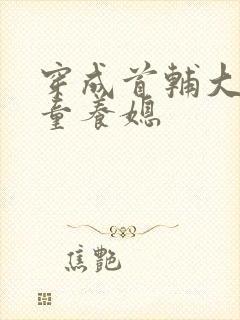 穿成首辅大
童养媳
焦艳